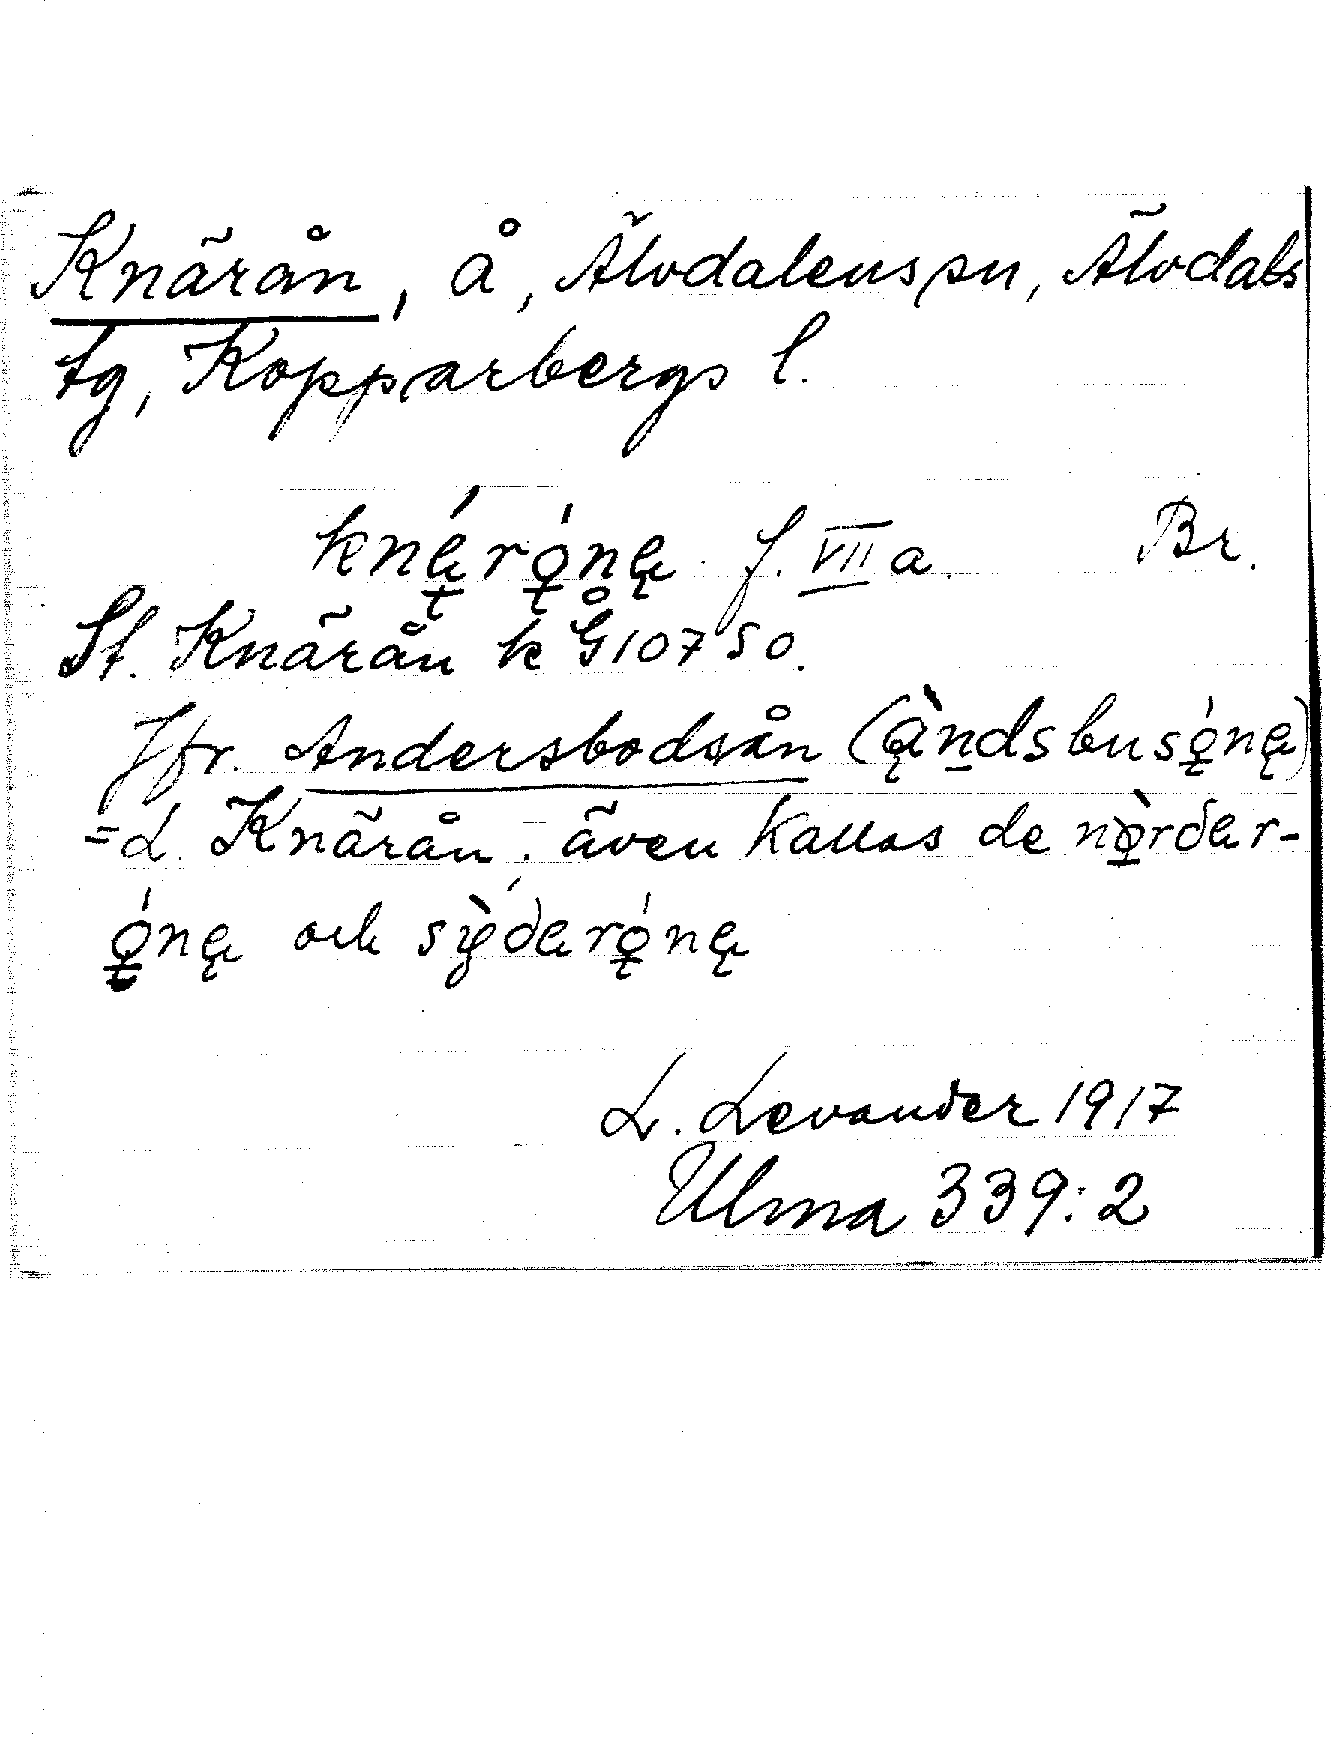 Knärån, å, Älvdalens sn, Älvdals
tg, Kopparbergs l.
knę́rǫ́nę f. VII a. Br.
St. Knärån k G 10750.
Jfr. Andersbodsån (ą̀ndsbusǫ́nę)
= L. Knärån; även kallas de nǫ̀rðer-
ǫ́nę och sỳ̨ðerǫ́nę
L. Levander 1917
Ulma 339:2